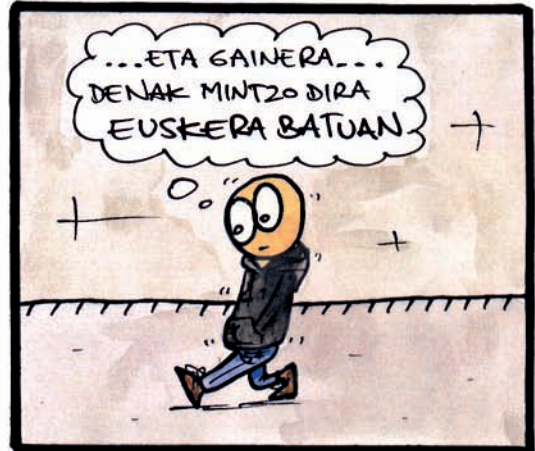 ...ETA GAINERA...
DENAK MINTZO DIRA
EUSKERA BATUAN